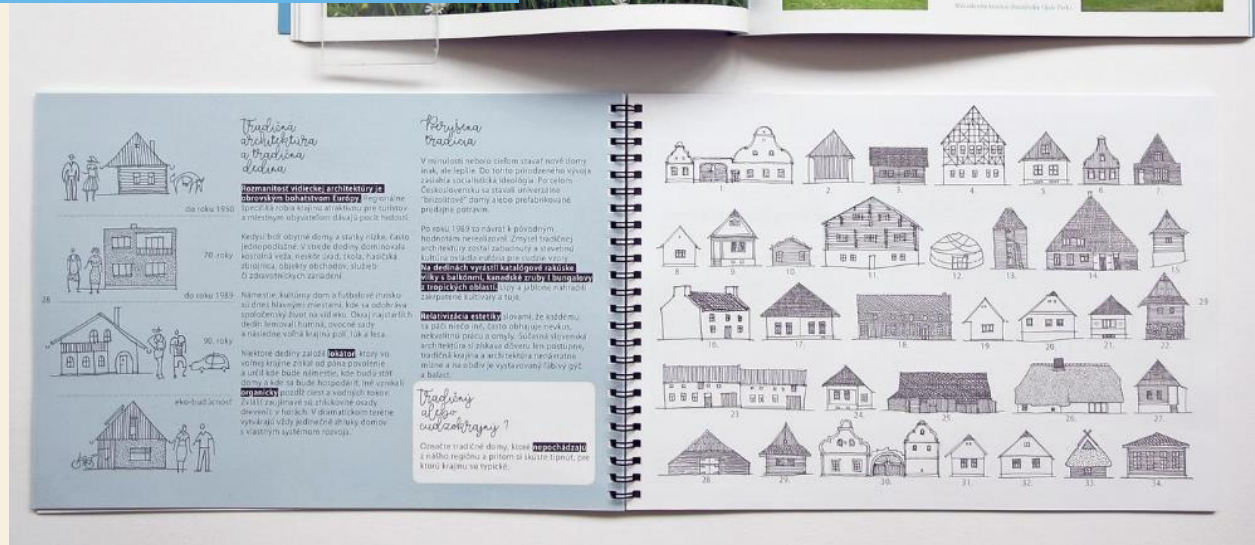 Tradičná
architektúra
a tradičná
dedina
Rozmanitosť vidieckej architektúry je
obrovským bohatstvom Európy. Regionálne
špecifiká robia krajinu atraktívnou pre turistov
a miestnym obyvateľom dávajú pocit hrdosti.
Kedysi boli obytné domy a statky nízke, často
jednopodlažné. V strede dediny dominovala
kostolná veža, neskôr úrad, škola, hasičská
zbrojnica, objekty obchodov, služieb
či zdravotníckych zariadení.
Námestie, kultúrny dom a futbalové ihrisko
sú dnes hlavnými miestami, kde sa odohráva
spoločenský život na vidieku. Okraj najstarších
dedín lemovali humná, ovocné sady
a následne voľná krajina polí, lúk a lesa.
Niektoré dediny založil lokátor, ktorý vo
voľnej krajine získal od pána povolenie
a určil kde bude námestie, kde budú stáť
domy a kde sa bude hospodáriť. Iné vznikali
organicky pozdĺž ciest a vodných tokov.
Zvlášť zaujímavé sú zhlukovité osady
dreveníc v horách. V dramatickom teréne
vytvárajú vždy jedinečné zhluky domov
s vlastným systémom rozvoja.
do roku 1950
70. roky
do roku 1989
90. roky
eko-budúcnosť
28
tradícia
V minulosti nebolo cieľom stavať nové domy
inak, ale lepšie. Do tohto prirodzeného vývoja
zasiahla socialistická ideológia. Po celom
Československu sa stavali univerzálne
"brizolitové" domy alebo prefabrikované
predajne potravín.
Po roku 1989 sa návrat k pôvodným
hodnotám nerealizoval. Zmysel tradičnej
architektúry zostal zabudnutý a stavebnú
kultúru ovládla eufória pre cudzie vzory.
Na dedinách vyrástli katalógové rakúske
vilky s balkónmi, kanadské zruby i bungalovy
z tropických oblastí. Lipy a jablone nahradili
zakrpatené kultivary a tuje.
Relativizácia estetiky slovami, že každému
sa páči niečo iné, často obhajuje nevkus,
nekvalitnú prácu a omyly. Súčasná slovenská
architektúra si získava dôveru len postupne,
tradičná krajina a architektúra nenávratne
mizne a na obdiv je vystavovaný ľúbivý gýč
a balast.
Tradičný
alebo
cudzokrajný?
Označte tradičné domy, ktoré nepochádzajú
z nášho regiónu a pritom si skúste tipnúť, pre
ktorú krajinu sú typické.
1.
2.
3.
4.
5.
6.
7.
8.
9.
10.
11.
12.
13.
14.
15.
16.
17.
18.
19.
20.
21.
22.
23.
24.
25.
26.
27.
28.
29.
30.
31.
32.
33.
34.
29